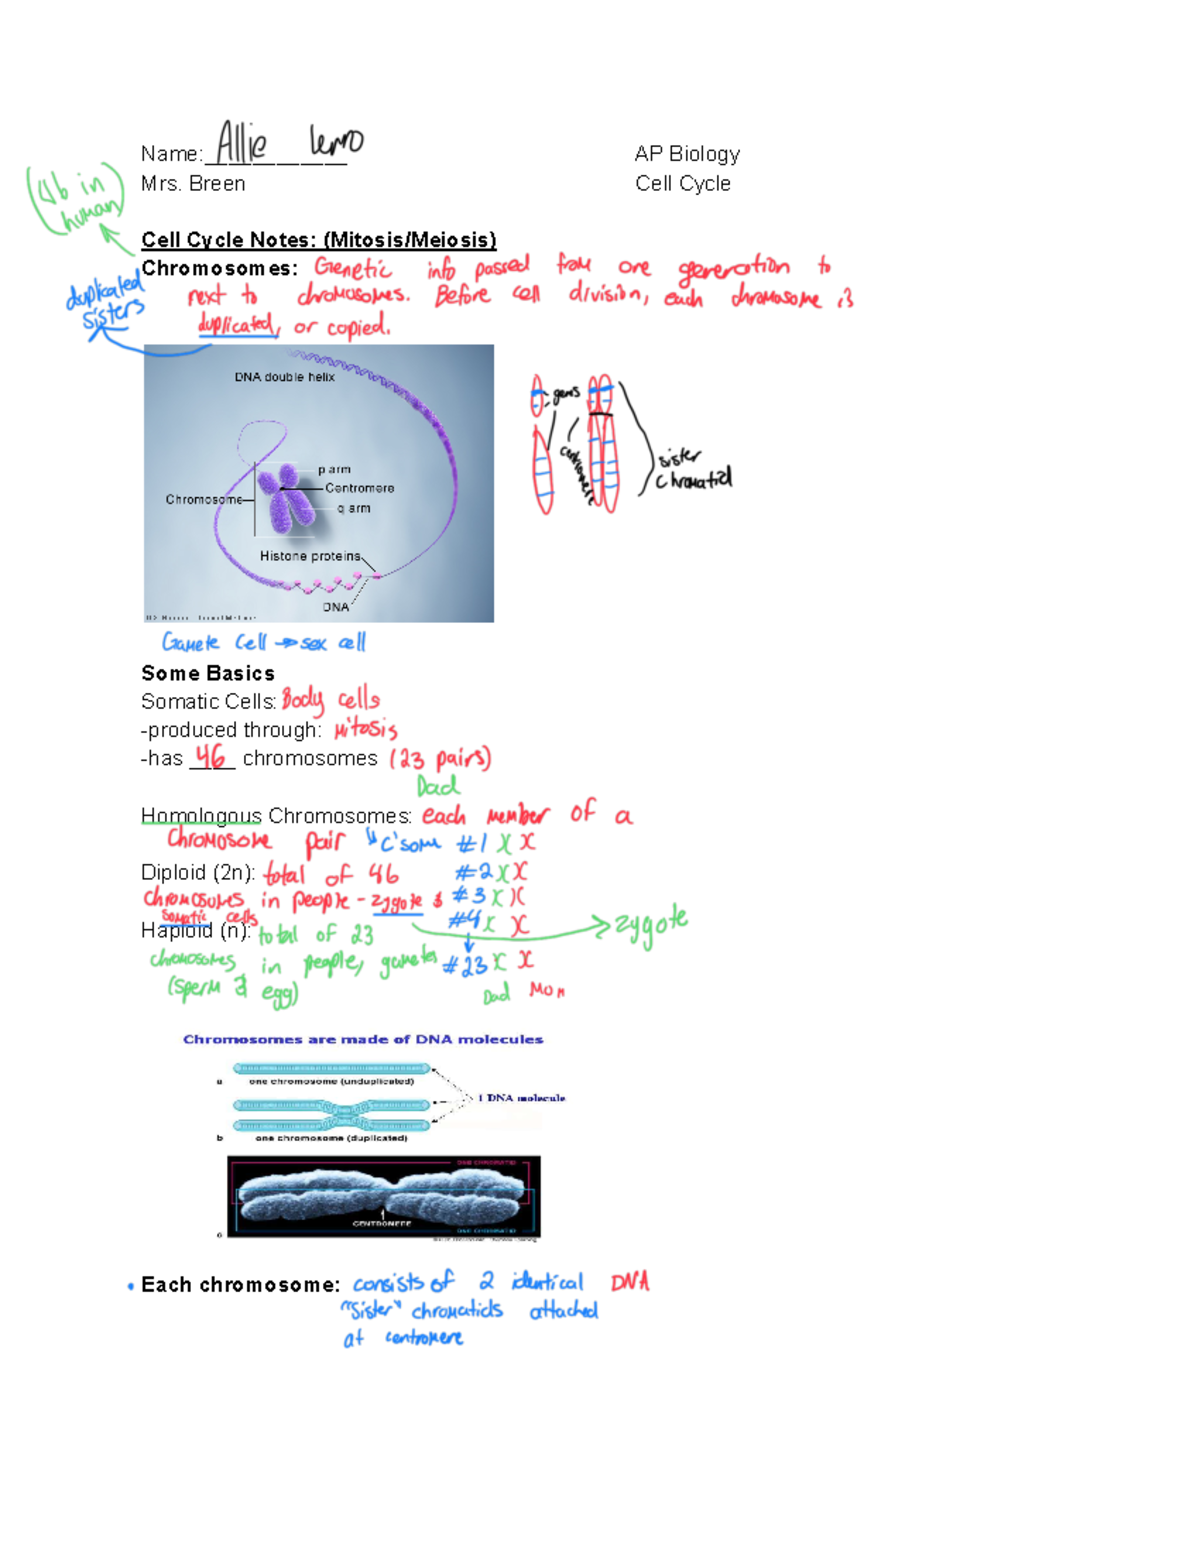 Name: Allie Lerro
AP Biology
(46 in human)
Mrs. Breen
Cell Cycle
Cell Cycle Notes: (Mitosis/Meiosis)
Chromosomes: Genetic info passed from one generation to
next to chromosomes. Before cell division, each chromosome is
duplicated, or copied.
duplicated
sisters
DNA double helix
p arm
Centromere
Chromosome
q arm
Histone proteins
DNA
genes
centromere
sister
chromatid
Gamete Cell → sex cell
Some Basics
Somatic Cells: Body cells
-produced through: Mitosis
-has 46 chromosomes (23 pairs)
Dad
Homologous Chromosomes: each member of a
chromosome pair
C'some #1 X X
Diploid (2n): total of 46
#2 X X
chromosomes in people - zygote &
#3 X X
somatic cells
#4 X X
→ zygote
Haploid (n): total of 23
chromosomes in people, gametes
#23 X X
(sperm & egg)
Dad Mom
Chromosomes are made of DNA molecules
a one chromosome (unduplicated)
1 DNA molecule
b one chromosome (duplicated)
ONE CHROMATID
CENTROMERE
ONE CHROMATID
c
• Each chromosome: consists of 2 identical DNA
"sister" chromatids attached
at centromere